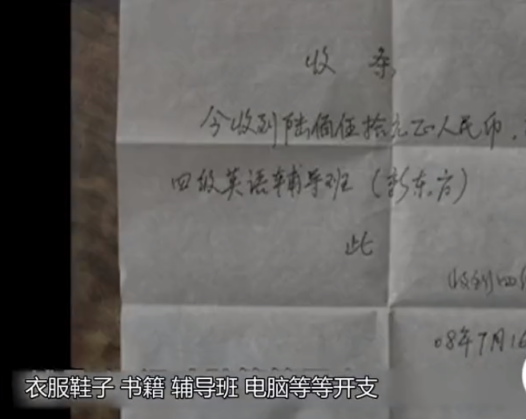 收 条
今收到陆佰伍拾元正人民币.
四级英语辅导班(新东方)
此
收到四
08年7月16
衣服鞋子 书籍 辅导班 电脑等等开支